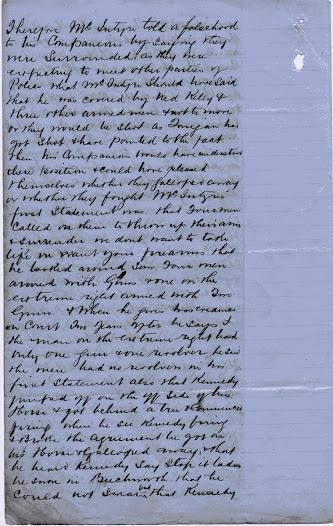 Therefore McIntyre told a falsehood
to his Companions by saying they
were Surrounded. as they were
expecting to meet other parties of
Police what McIntyre Should have said
that he was covered by Ned Kelly &
three other armed men & not to move
or they would be shot as Lonegan has
got shot & have pointed to the fact
Then his Companions would have understood
there position & could have pleased
themselves whether they galloped away
or whether they fought McIntyres
first Statement was that Fourmen
Called on them to throw up their arms
& Surrender we dont want to take
life we want your firearms that
he looked around Saw Four men
armed with Guns & one on the
extreme right armed with Two
Guns & When he gives his evidence
on Court Two years after he says
the man on the extreme right had
only one gun & one revolver he said
the men had no revolvers in his
first Statement also that Kennedy
jumped off on the off Side of his
Horse & got behind a tree & Commenced
firing when he see Kennedy firing
& Broke the Agreement he got on
his Horse & Galloped away & that
he heard Kennedy Say Stop it lads
he Swore in Beechworth that he
Could not Swear but that Kennedy